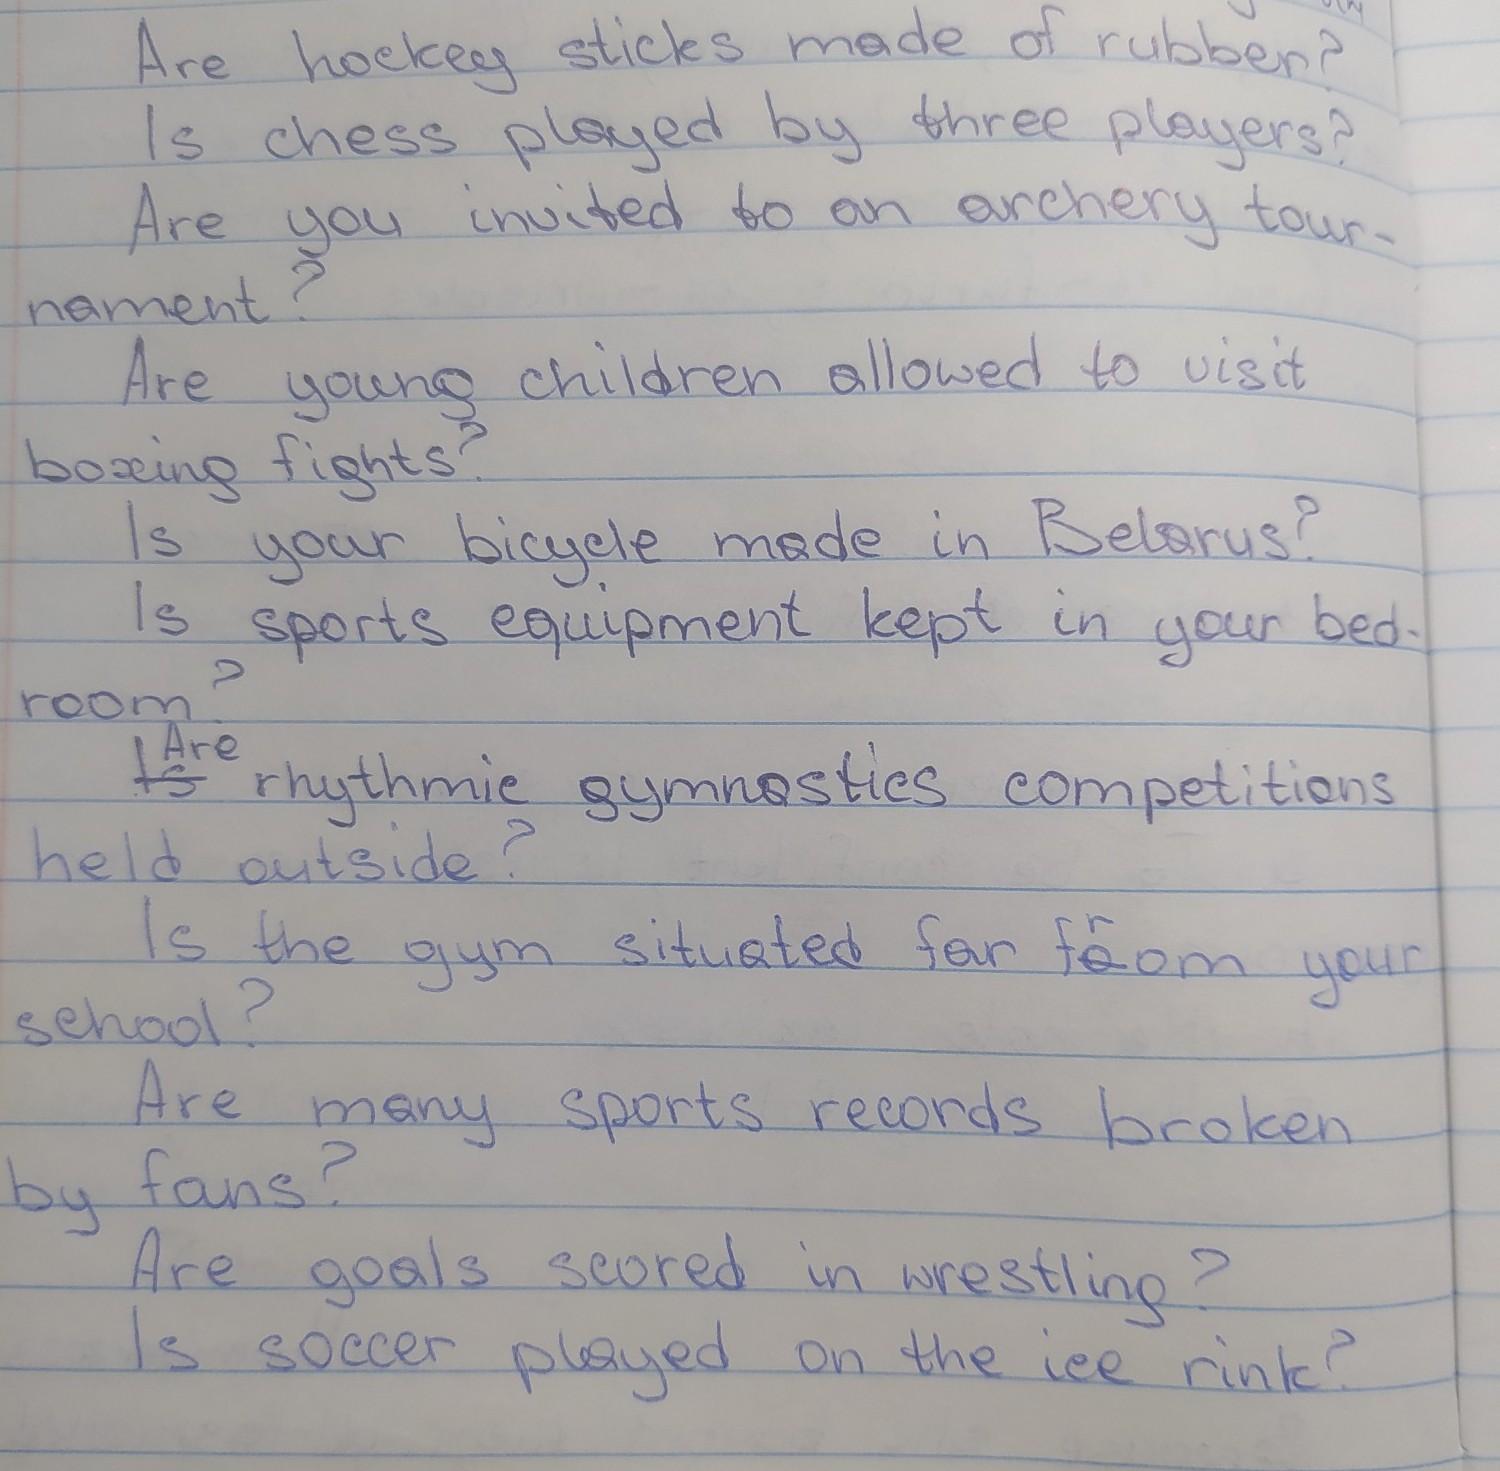 Are hockey sticks made of rubber?
Is chess played by three players?
Are you invited to an archery tour-
nament?
Are young children allowed to visit
boxing fights?
Is your bicycle made in Belarus?
Is sports equipment kept in your bed-
room?
Is Are rhythmic gymnastics competitions
held outside?
Is the gym situated far from your
school?
Are many sports records broken
by fans?
Are goals scored in wrestling?
Is soccer played on the ice rink?